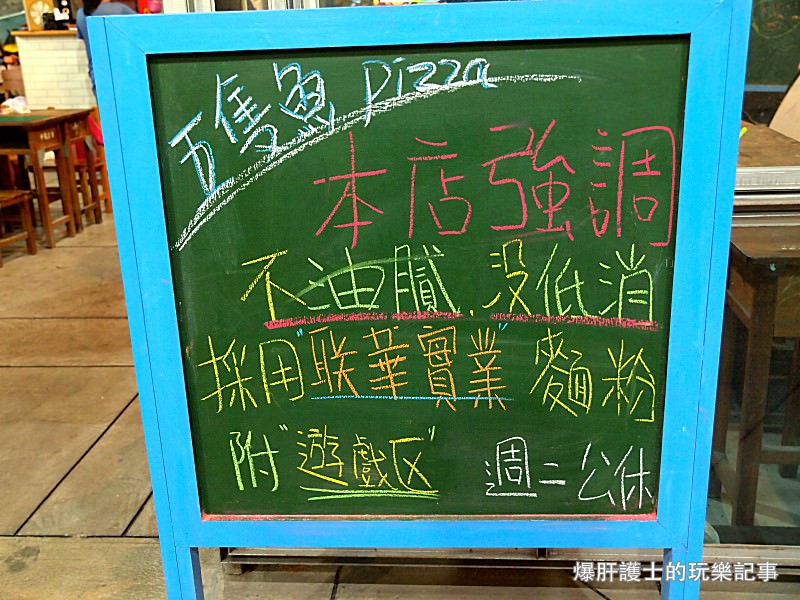 隻魚 pizza
本店強調
不油膩.沒低消
採用"联華實業"麵粉
附"遊戲区"
週二公休
爆肝護士的玩樂記事